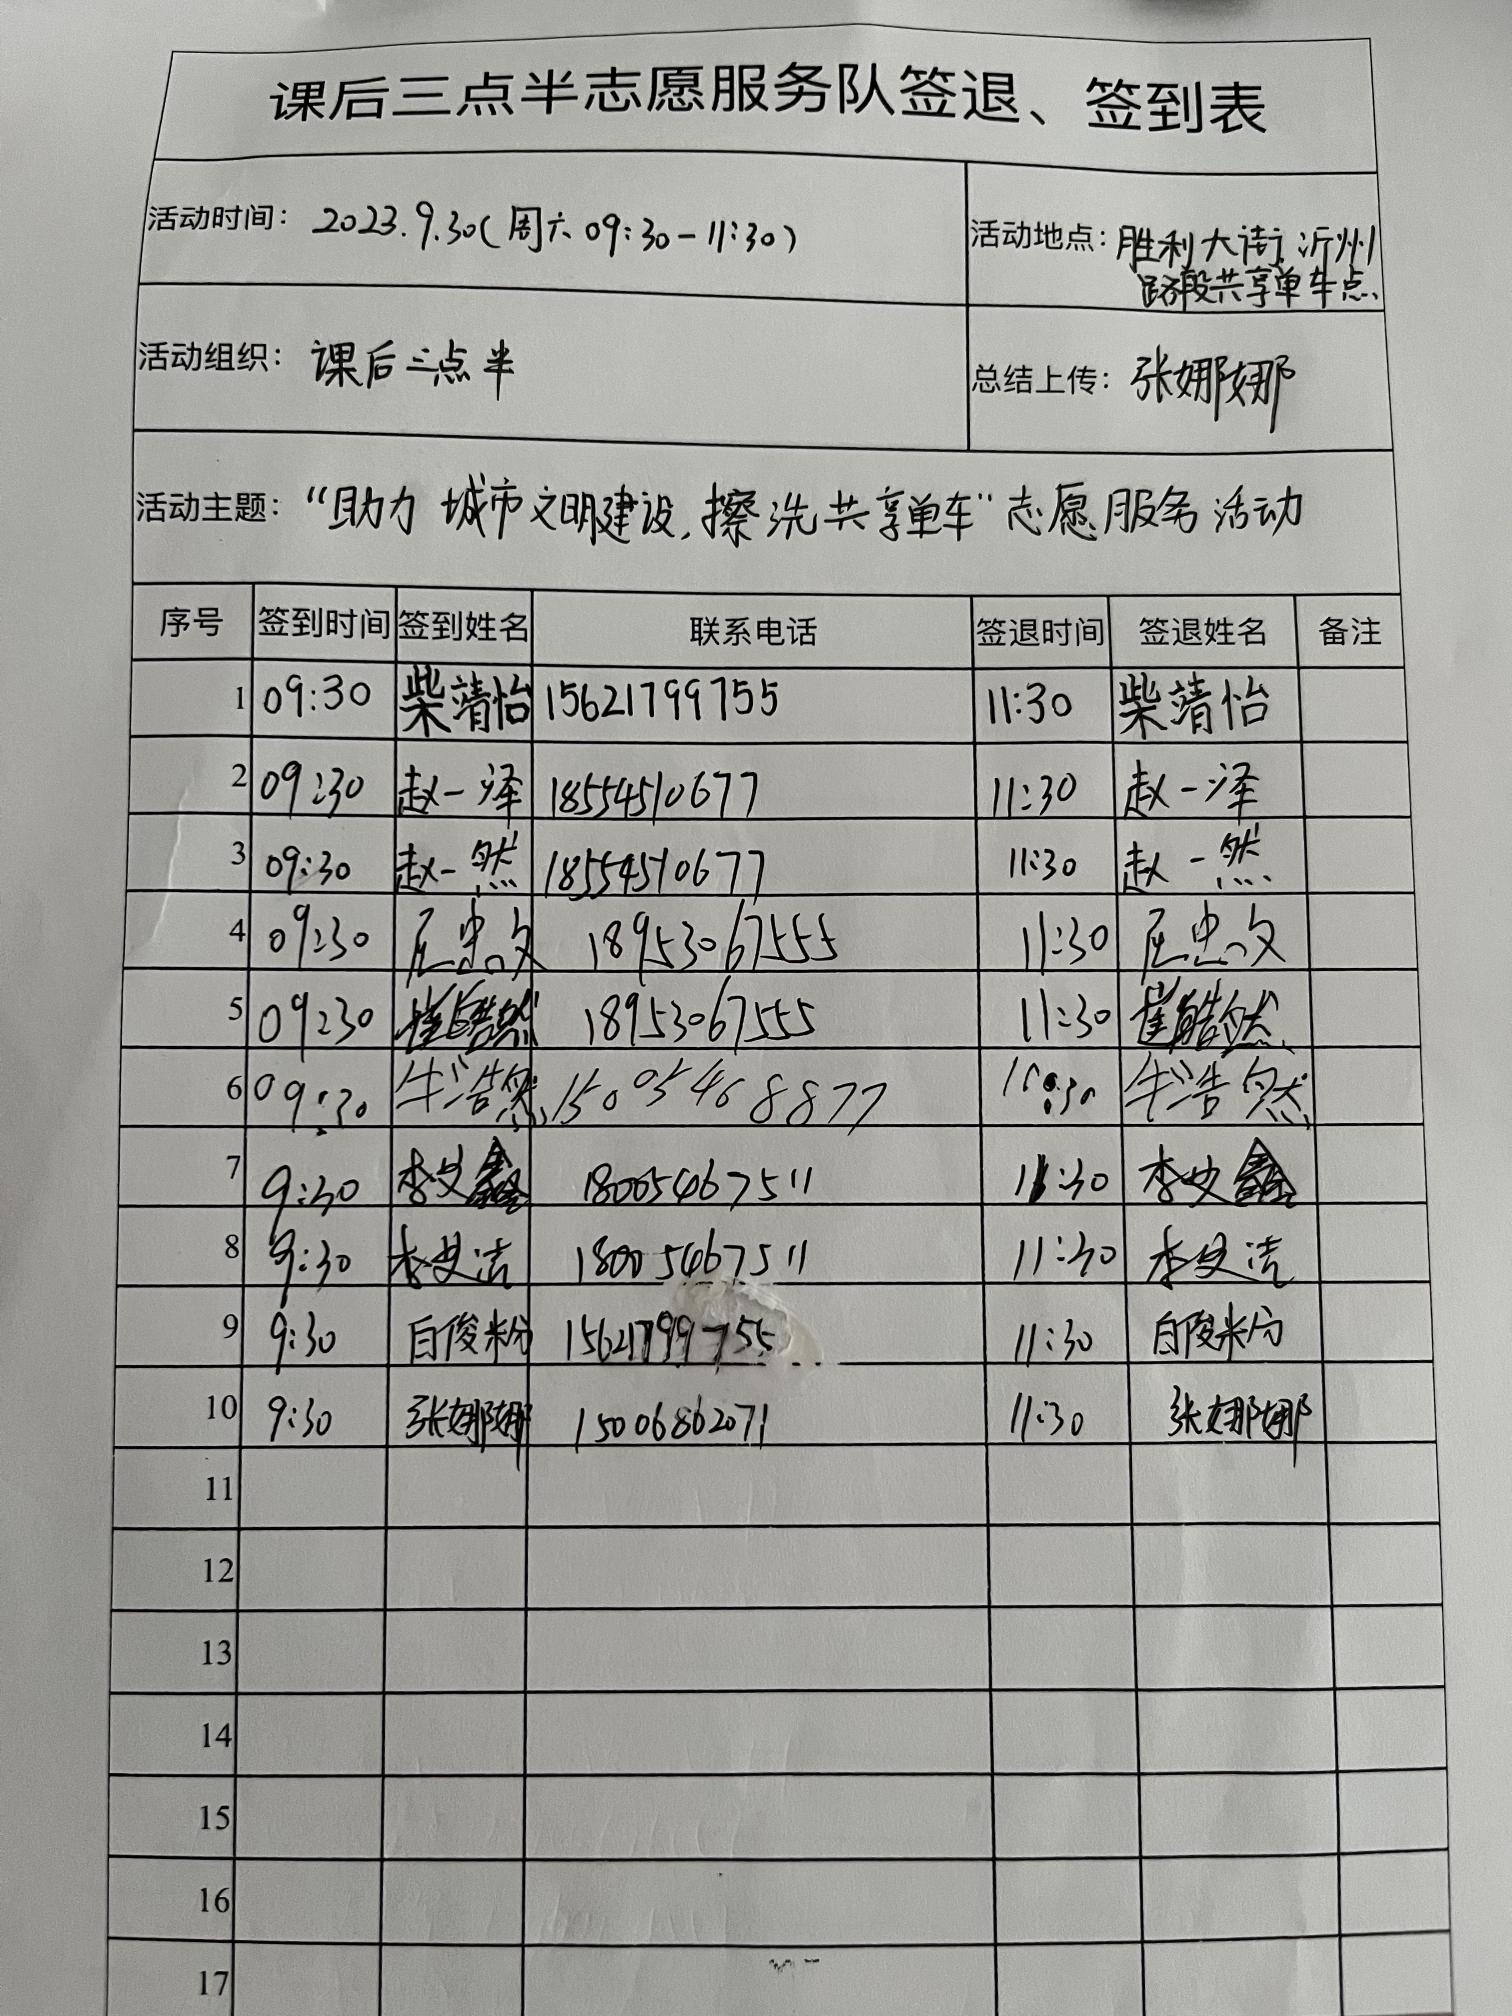 课后三点半志愿服务队签退、签到表
活动时间： 2023.9.30(周六 09:30-11:30) 活动地点：胜利大街,沂州
路段共享单车点
活动组织： 课后三点半 总结上传： 张娜娜
活动主题： “助力 城市文明建设，擦洗共享单车”志愿服务活动
序号 签到时间 签到姓名 联系电话 签退时间 签退姓名 备注
1 09:30 柴靖怡 15621799755 11:30 柴靖怡
2 09:30 赵一泽 18554510677 11:30 赵一泽
3 09:30 赵一然 18554510677 11:30 赵一然
4 09:30 18953067555 11:30
5 09:30 崔皓然 18953067555 11:30 崔皓然
6 09:30 牛浩然 15005468877 牛浩然
7 9:30 李文鑫 18005467511 11:30 李文鑫
8 9:30 李文洁 18005467511 11:30 李文洁
9 9:30 白俊粉 15621799755 11:30 白俊粉
10 9:30 张娜娜 15006862071 11:30 张娜娜
11
12
13
14
15
16
17